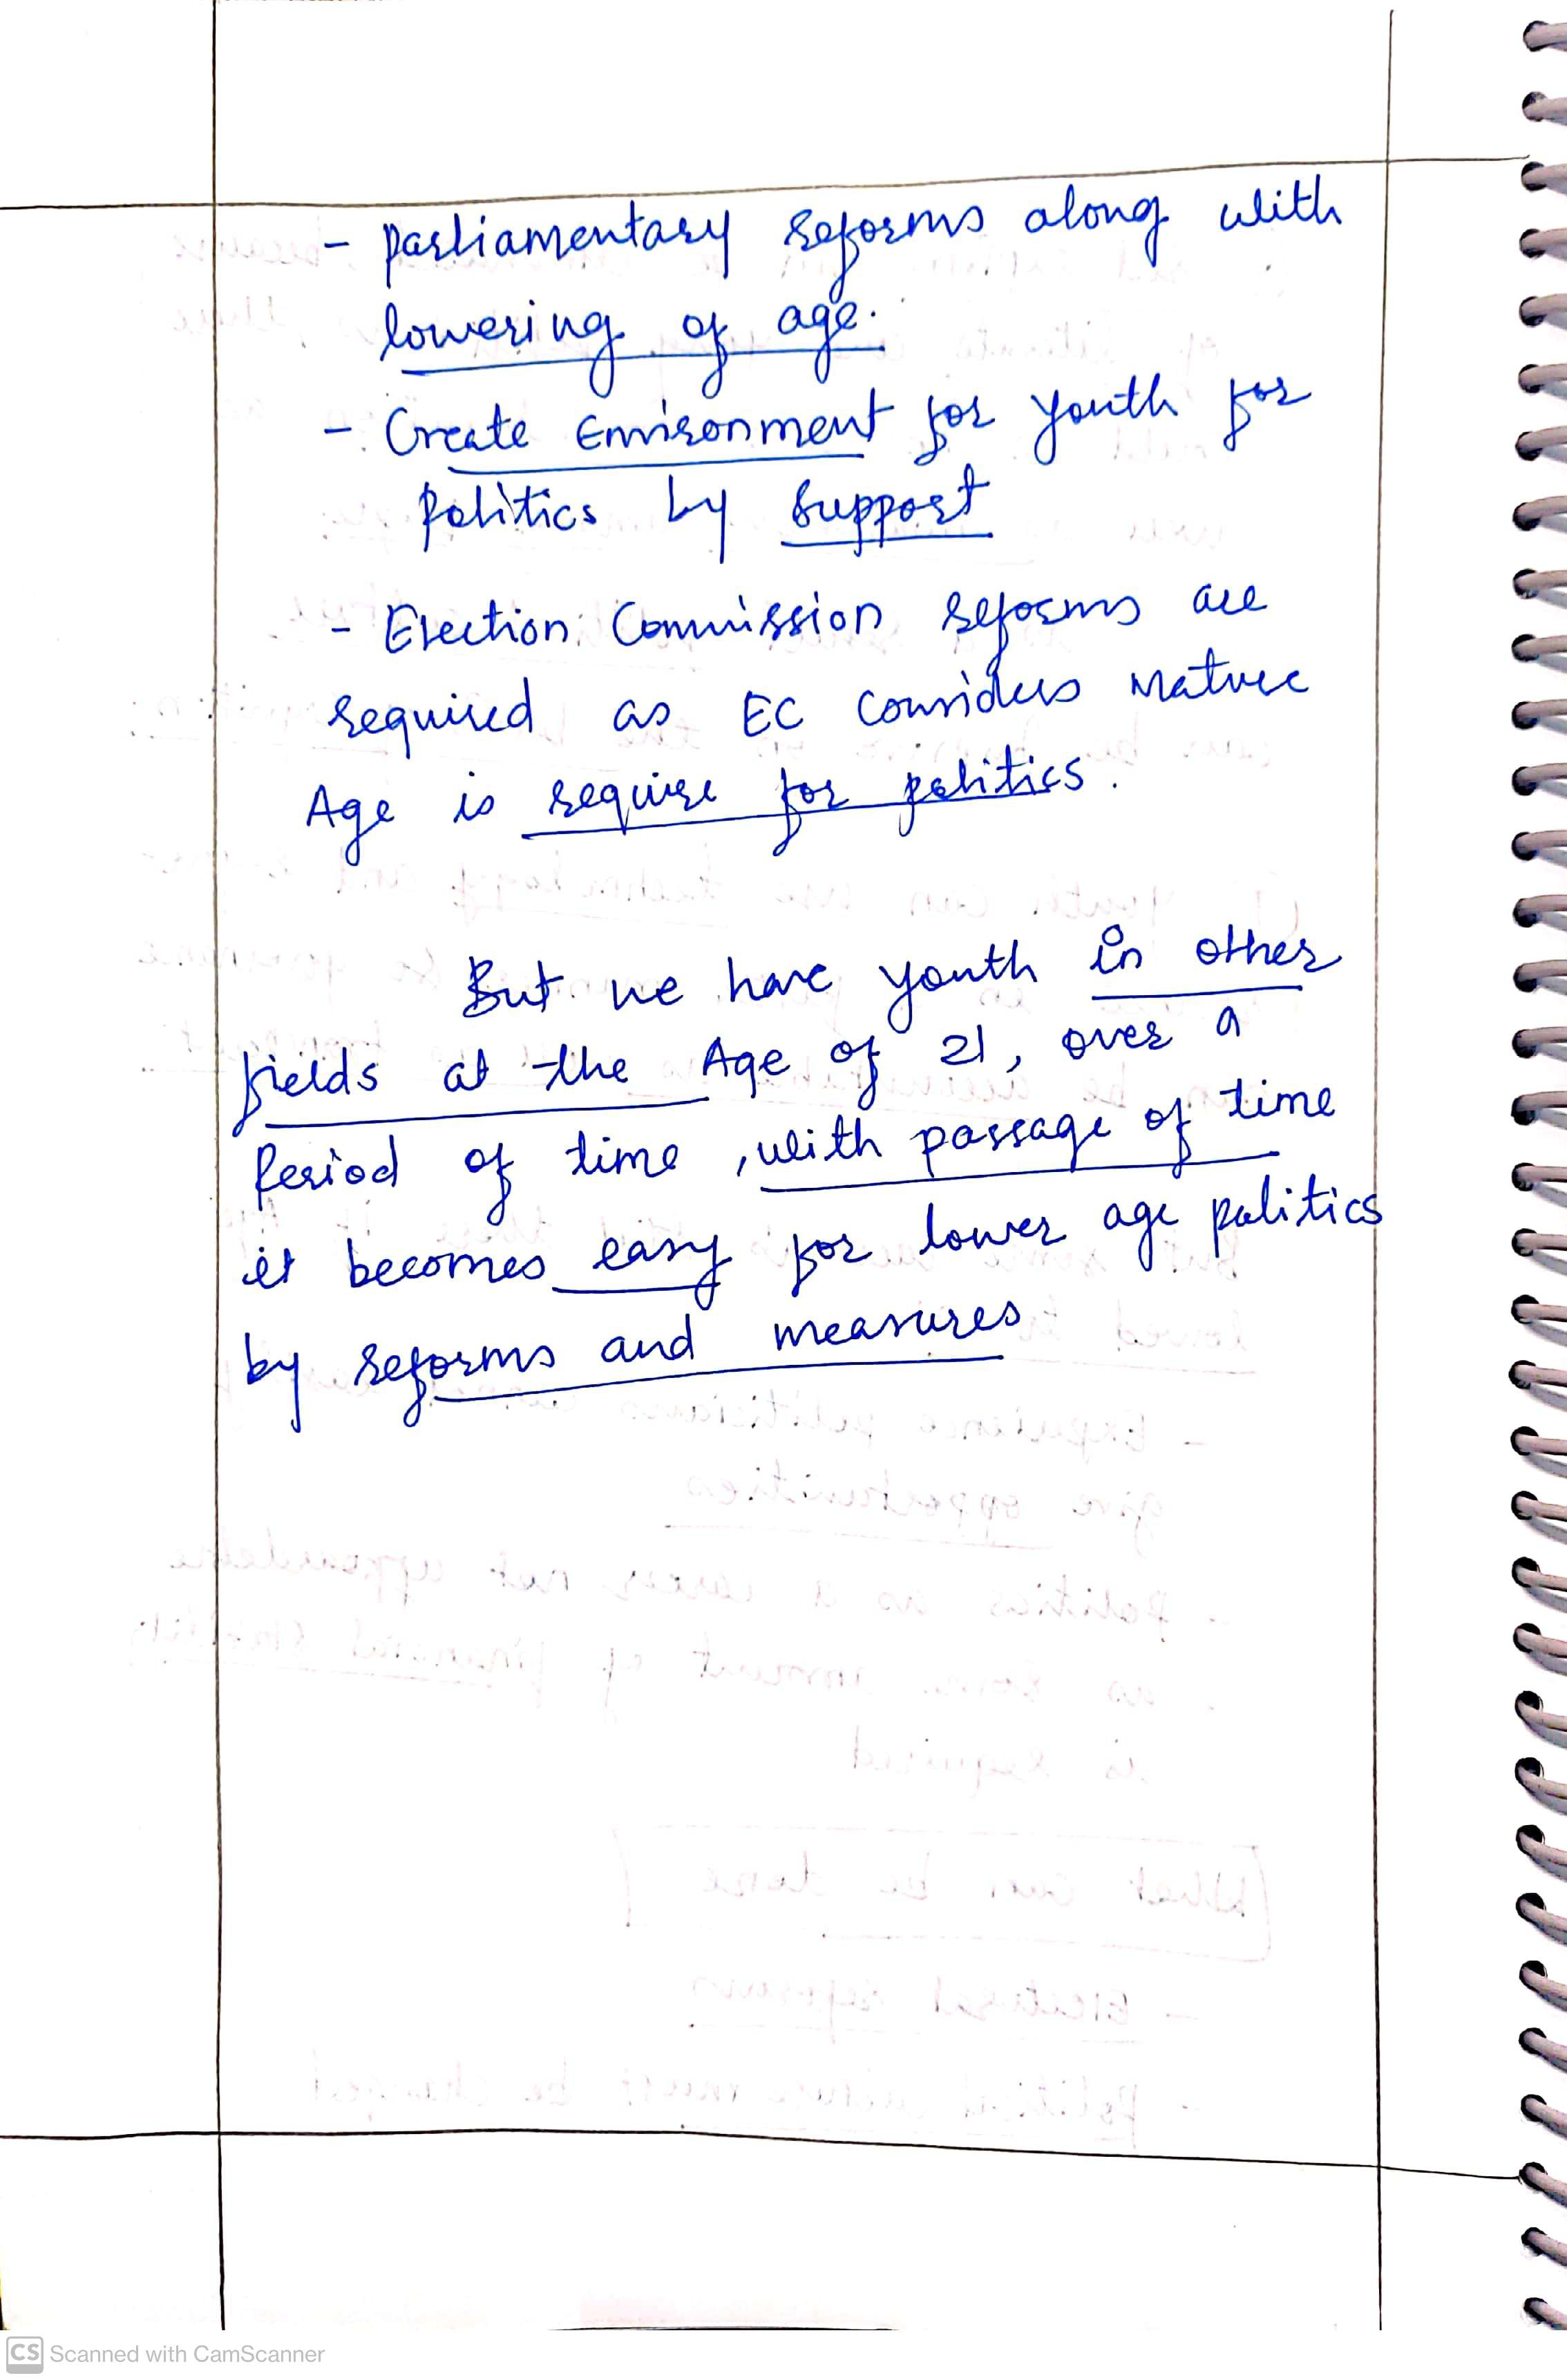 - Parliamentary reforms along with
lowering of age.
- Create Environment for youth for
Politics by support
- Election Commission reforms are
required as EC Considers Mature
Age is require for politics.
But we have youth in other
fields at the Age of 21, over a
Period of time, with passage of time
it becomes easy for lower age politics
by reforms and measures
CS Scanned with CamScanner